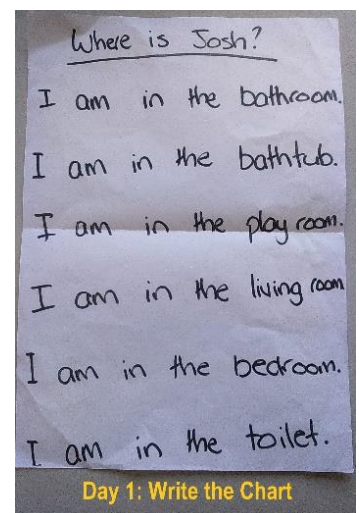 Where is Josh?
I am in the bathroom.
I am in the bathtub.
I am in the play room.
I am in the living room
I am in the bedroom.
I am in the toilet.
Day 1: Write the Chart